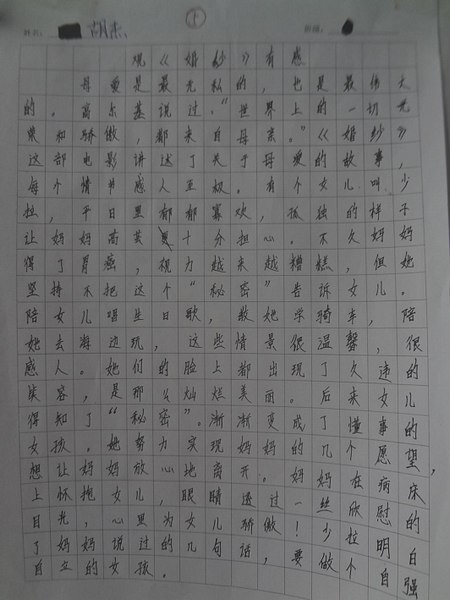 姓名: 胡杰 班级:
下
观《婚纱》有感
母爱是最无私的,也是最伟大
的。高尔基说过:“世界上的一切光
荣和骄傲,都来自母亲。”《婚纱》
这部电影讲述了关于母爱的故事,
每个情节感人至极。有个女儿叫少
拉,平日里郁郁寡欢,孤独的样子
让妈妈高芸更十分担心。不久妈妈
得了胃癌,视力越来越糟糕,但她
坚持不把这个“秘密”告诉女儿。
陪女儿唱生日歌,教她学骑车,陪
她去游边玩,这些情景很温馨,很
感人。她们的脸上都出现了久违的
笑容,是那么灿烂美丽。后来女儿
得知了“秘密”。渐渐变成了懂事的
女孩。她努力实现妈妈的几个愿望,
想让妈妈放心地离开。妈妈在病床
上怀抱女儿,眼睛透过一丝欣慰的
目光,心里为女儿骄傲!少拉明白
了妈妈说过的几句话,要做个自强
自立的女孩。